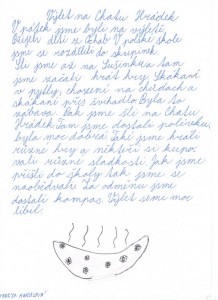 Výlet na Chatu Hrádek
V pátek jsme byli na výletě.
byli děti z
V
jsme se rozdělili do skupinek.
Šli jsme až na Sušinku a tam
jsme začali hrát hry. Skákání
v pytly, chození na chůdách a
skákání přes švihadlo. Byla to
zábava. Pak jsme šli na Chatu
Hrádek. Tam jsme dostali polévku,
byla moc dobrá. Také jsme hráli
různé hry a někteří si kupo-
vali různé sladkosti. Jak jsme
přišli do školy tak jsme se
naobědvali. Za odměnu jsme
dostali kompas. Výlet se mi moc
líbil.